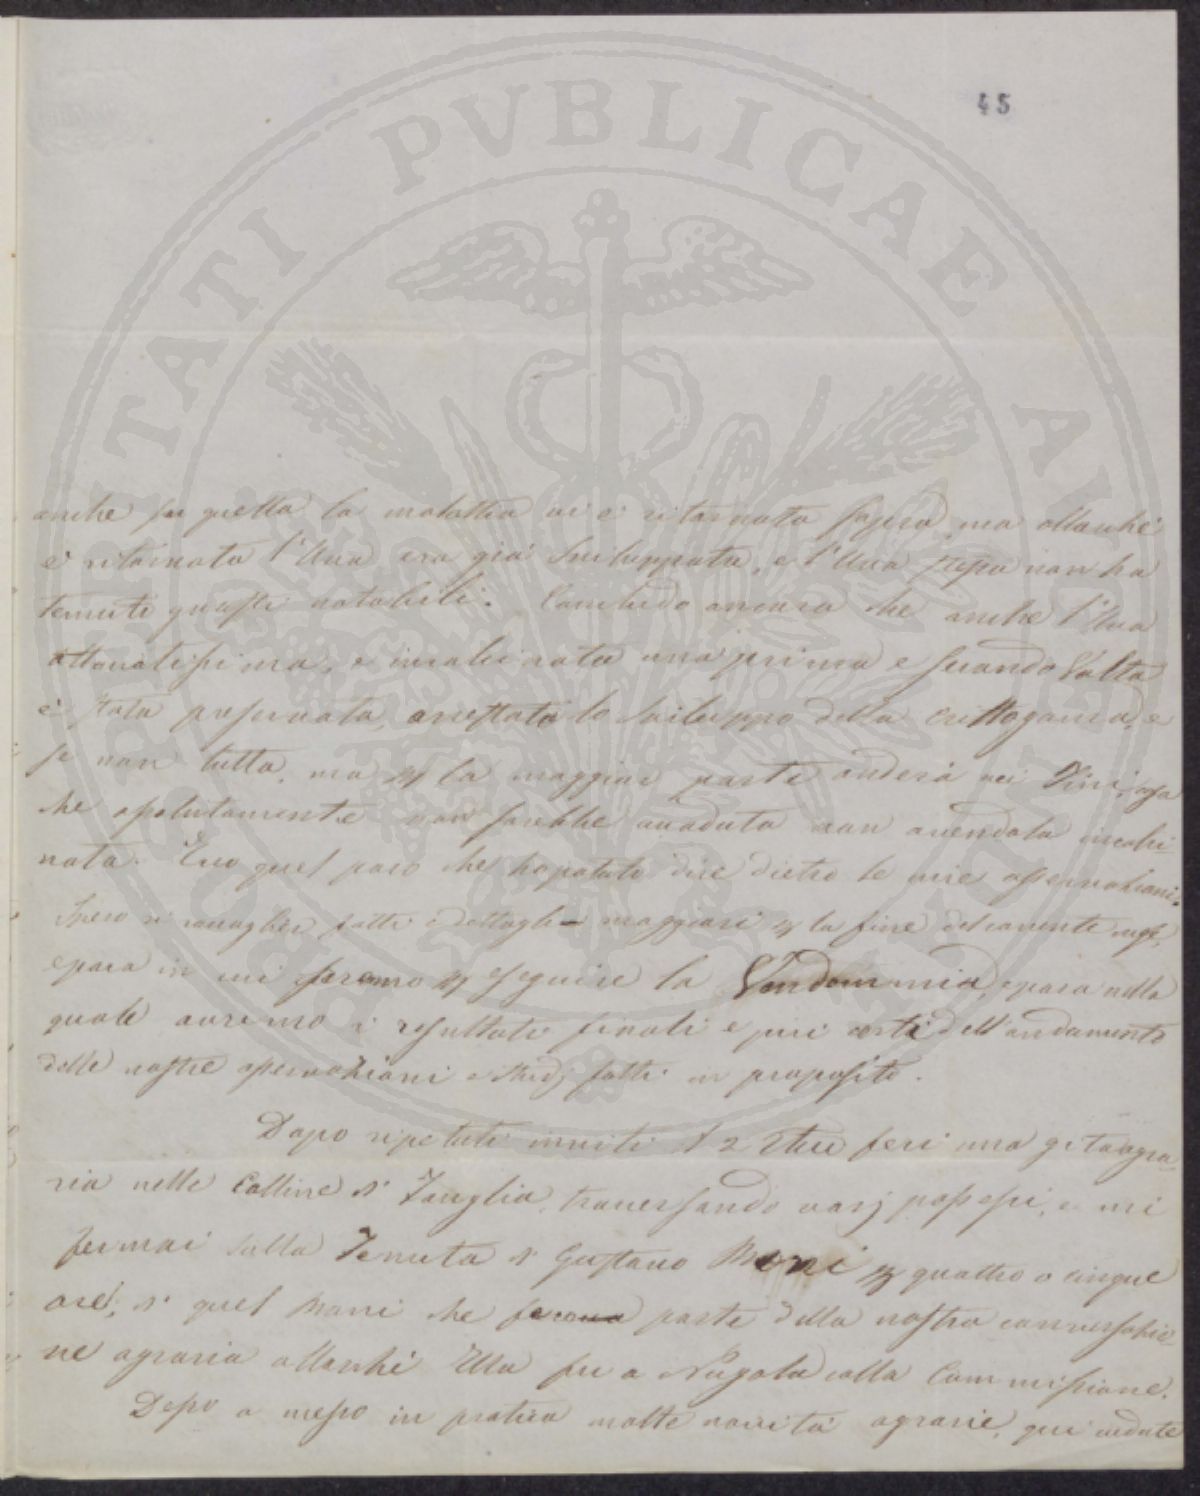 PROSPERITATI PVBLICAE AVGENDAE
45
anche su quella la malattia vi è ritornata sopra, ma allorchè
è ritornata l'Uva era già sviluppata, e l'Uva stessa non ha
temuti guasti notabili. Concludo ancora che anche l'Uva
attaccatissima, e incalcinata una prima e seconda Volta
è stata preservata, arrestato lo sviluppo della crittogama, e
se non tutta, ma p la maggior parte anderà nei Tini, cosa
che assolutamente non sarebbe accaduta non avendola incalci-
nata. Ecco quel poco che ho potuto dire dietro le mie osservazioni.
Spero di ragguagli fatti e dettagli maggiori p la fine del corrente
epoca in cui saremo p eseguire la Vendemmia, epoca nella
quale avremo i resultati finali e più certi dell'andamento
delle nostre osservazioni e studj fatti in proposito.
Dopo ripetuti inviti feci una gita agra-
ria nelle Colline di Fauglia, traversando varj possessi, e mi
fermai sulla Tenuta di Gustavo p quattro o cinque
ore, di quel che faceva parte della nostra conversazio-
ne agraria allorchè Ella fu a Nugola colla Commissione.
Desso a messo in pratica molte novità agrarie, qui vedute